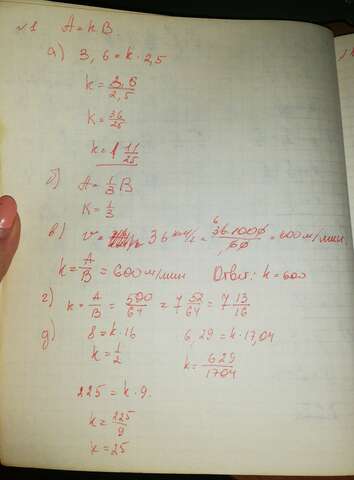 №1 A=k·B.
а) 3,6=k·2,5
k=3,6/2,5
k=36/25
k=1 11/25
б) A=1/3 B
K=1/3
в) v= 36 км/ч = 36·1000/60 = 600 м/мин
k=A/B = 600 м/мин Ответ: k=600
г) k=A/B = 500/64 = 7 52/64 = 7 13/16
д) 8=k·16 6,29=k·17,04
k=1/2 k=629/1704
225=k·9.
k=225/9
k=25